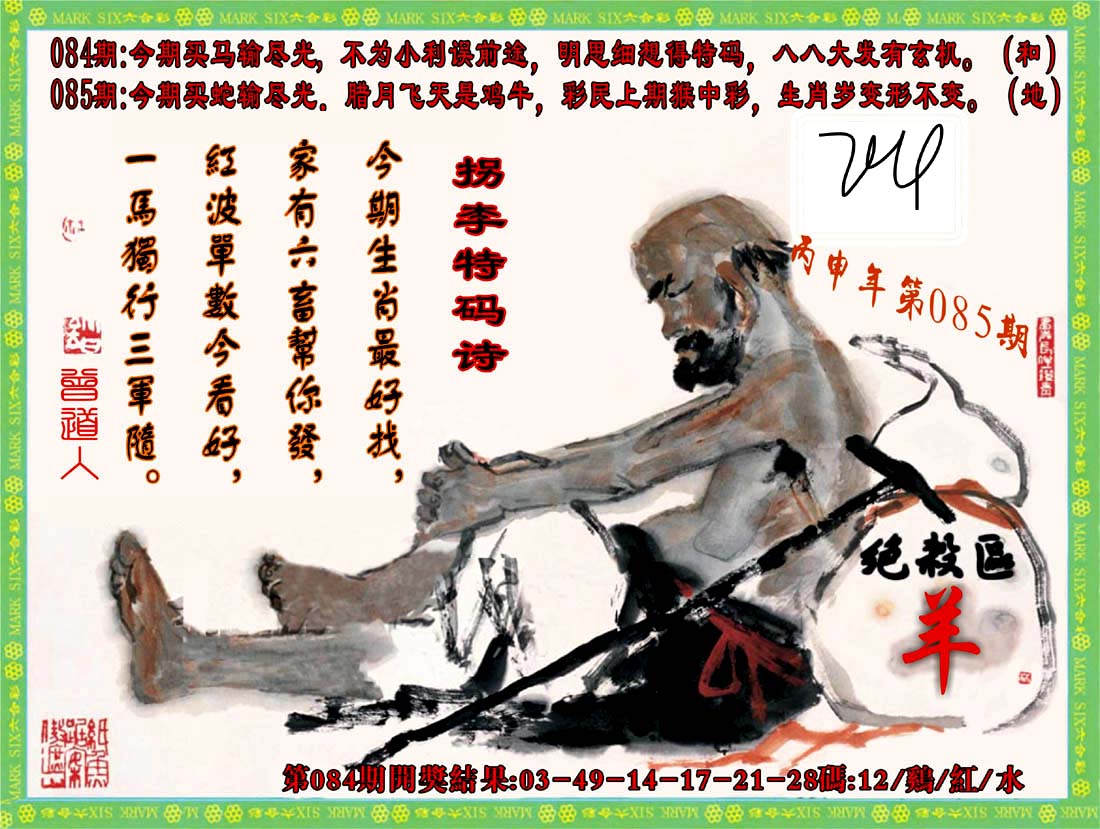 MARK SIX六合彩
084期:今期买马输尽光, 不为小利误前途, 明思细想得特码, 八八大发有玄机。 (和)
085期:今期买蛇输尽光. 腊月飞天是鸡牛, 彩民上期猴中彩, 生肖岁变形不变。 (地)
拐李特码诗
今期生肖最好找,
家有六畜幫你發,
紅波單數今看好,
一馬獨行三軍隨。
曾道人
丙申年第085期
绝殺區
羊
第084期開獎結果:03-49-14-17-21-28碼:12/鷄/紅/水